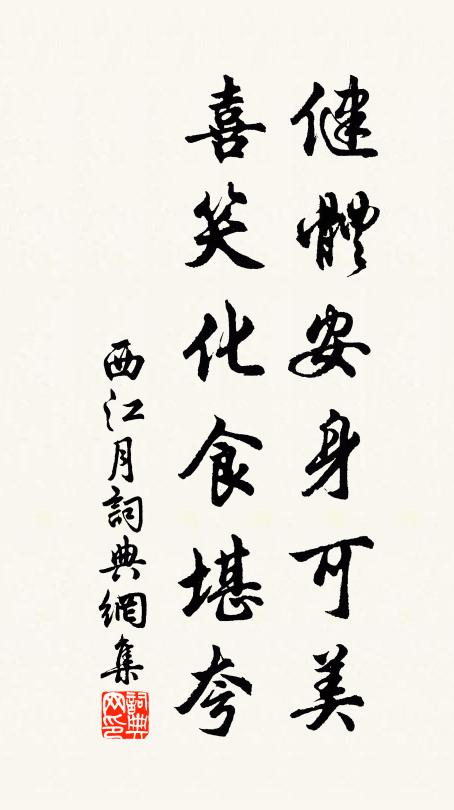 健體安身可美
喜笑化食堪夸
西江月詞典網集
詞典網印